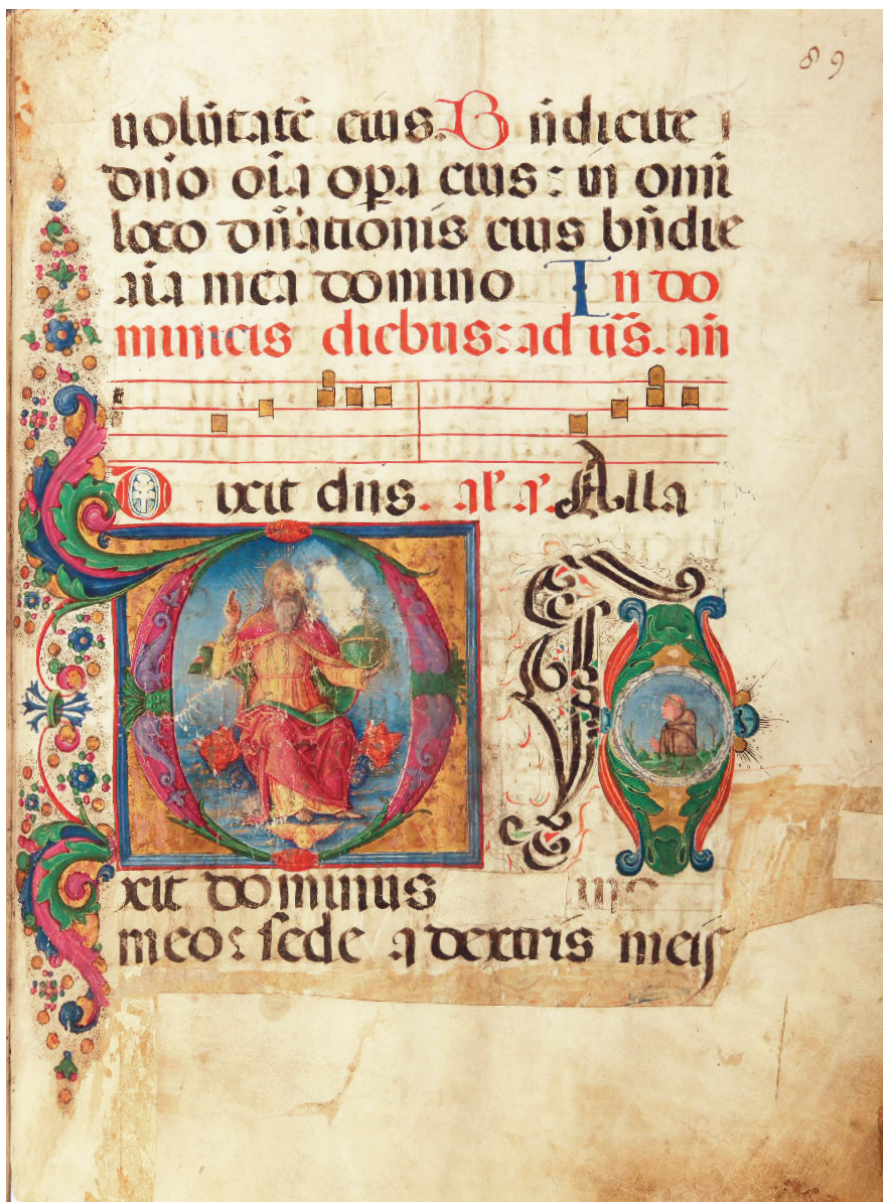 89
uolūtatē eius. Bn̄dicite
dn̄o oīa opa eius: in omī
loco dn̄ationis eius bn̄dic
aīa mea domino In do
minicis diebus: ad us̄. an̄
Dixit dn̄s. Alla
Dixit dominus
meo: sede a dextris meis